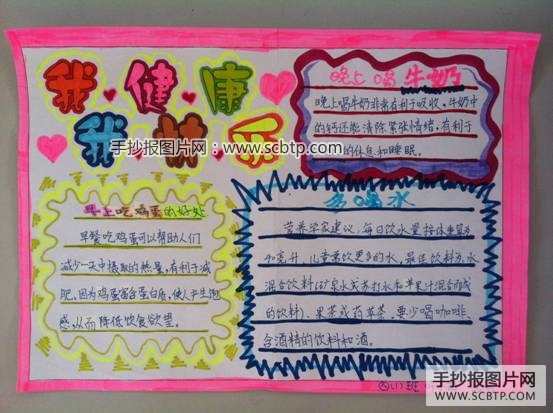 我健康
我快乐
手抄报图片网:www.scbtp.com
晚上喝牛奶
晚上喝牛奶非常有利于吸收,牛奶中
的钙还能清除紧张情绪,有利于
的休息和睡眠。
早上吃鸡蛋的好处
早餐吃鸡蛋可以帮助人们
减少一天中摄取的热量,有利于减
肥。因为鸡蛋富含蛋白质,使人产生饱
感,从而降低饮食欲望。
多喝水
营养学家建议,每日饮水量按体重
40毫升,儿童需饮更多的水,最佳饮料为水
混合饮料(矿泉水或苏打水和苹果汁混合而成
的饮料)、果茶或药草茶,要少喝咖啡、
含酒精的饮料和酒。
四(1)班
手抄报图片网
WWW.SCBTP.COM